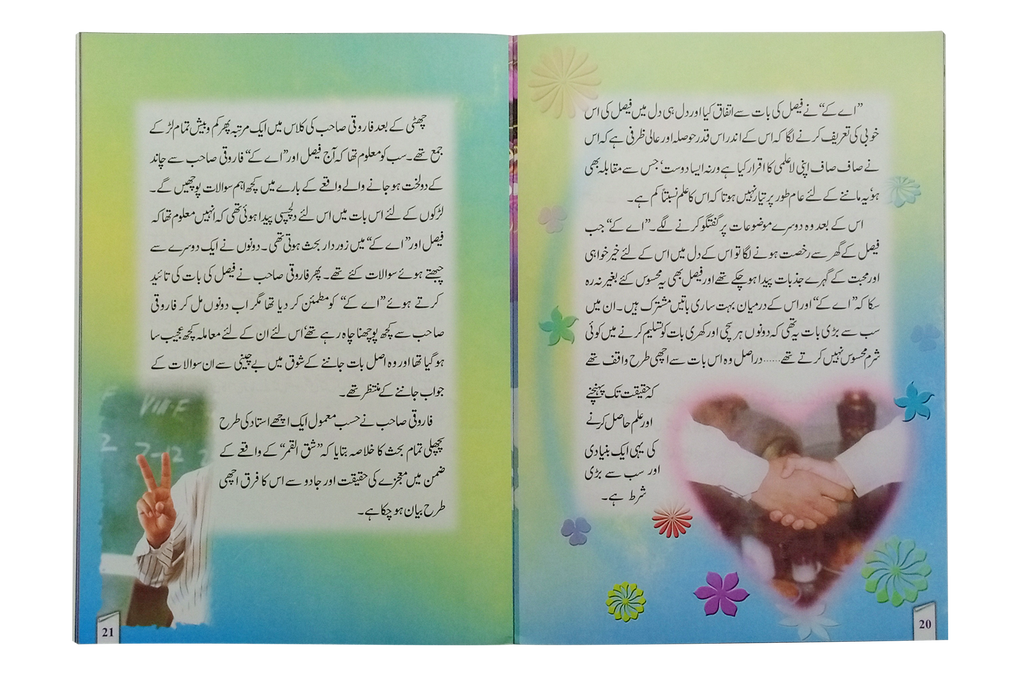 ”اے کے“ نے فیصل کی بات سے اتفاق کیا اور دل ہی دل میں فیصل کی اس
خوبی کی تعریف کرنے لگا کہ اس کے اندر اس قدر حوصلہ اور عالی ظرفی ہے کہ اس
نے صاف صاف اپنی لاعلمی کا اقرار کیا ہے ورنہ ایسا دوست‘ جس سے مقابلہ بھی
ہو‘ یہ ماننے کے لئے عام طور پر تیار نہیں ہوتا کہ اس کا علم نسبتاً کم ہے۔
اس کے بعد وہ دوسرے موضوعات پر گفتگو کرنے لگے۔ ”اے کے“ جب
فیصل کے گھر سے رخصت ہونے لگا تو اس کے دل میں اس کے لئے خیر خواہی
اور محبت کے گہرے جذبات پیدا ہو چکے تھے اور فیصل بھی یہ محسوس کئے بغیر نہ رہ
سکا کہ ”اے کے“ اور اس کے درمیان بہت ساری باتیں مشترک ہیں۔ ان میں
سب سے بڑی بات یہ تھی کہ دونوں ہر سچی اور کھری بات کو تسلیم کرنے میں کوئی
شرم محسوس نہیں کرتے تھے...... دراصل وہ اس بات سے اچھی طرح واقف تھے
کہ حقیقت تک پہنچنے
اور علم حاصل کرنے
کی یہی ایک بنیادی
اور سب سے بڑی
شرط ہے۔
20
چھٹی کے بعد فاروقی صاحب کی کلاس میں ایک مرتبہ پھر کم و بیش تمام لڑکے
جمع تھے۔ سب کو معلوم تھا کہ آج فیصل اور ”اے کے“ فاروقی صاحب سے چاند
کے دولخت ہو جانے والے واقعے کے بارے میں کچھ اہم سوالات پوچھیں گے۔
لڑکوں کے لئے اس بات میں اس لئے دلچسپی پیدا ہوئی تھی کہ انہیں معلوم تھا کہ
فیصل اور ”اے کے“ میں زوردار بحث ہوتی تھی۔ دونوں نے ایک دوسرے سے
چبھتے ہوئے سوالات کئے تھے۔ پھر فاروقی صاحب نے فیصل کی بات کی تائید
کرتے ہوئے ”اے کے“ کو مطمئن کر دیا تھا مگر اب دونوں مل کر فاروقی
صاحب سے کچھ پوچھنا چاہ رہے تھے‘ اس لئے ان کے لئے معاملہ کچھ عجیب سا
ہو گیا تھا اور وہ اصل بات جاننے کے شوق میں بے چینی سے ان سوالات کے
جواب جاننے کے منتظر تھے۔
فاروقی صاحب نے حسب معمول ایک اچھے استاد کی طرح
پچھلی تمام بحث کا خلاصہ بتایا کہ ”شق القمر“ کے واقعے کے
ضمن میں معجزے کی حقیقت اور جادو سے اس کا فرق اچھی
طرح بیان ہو چکا ہے۔
21